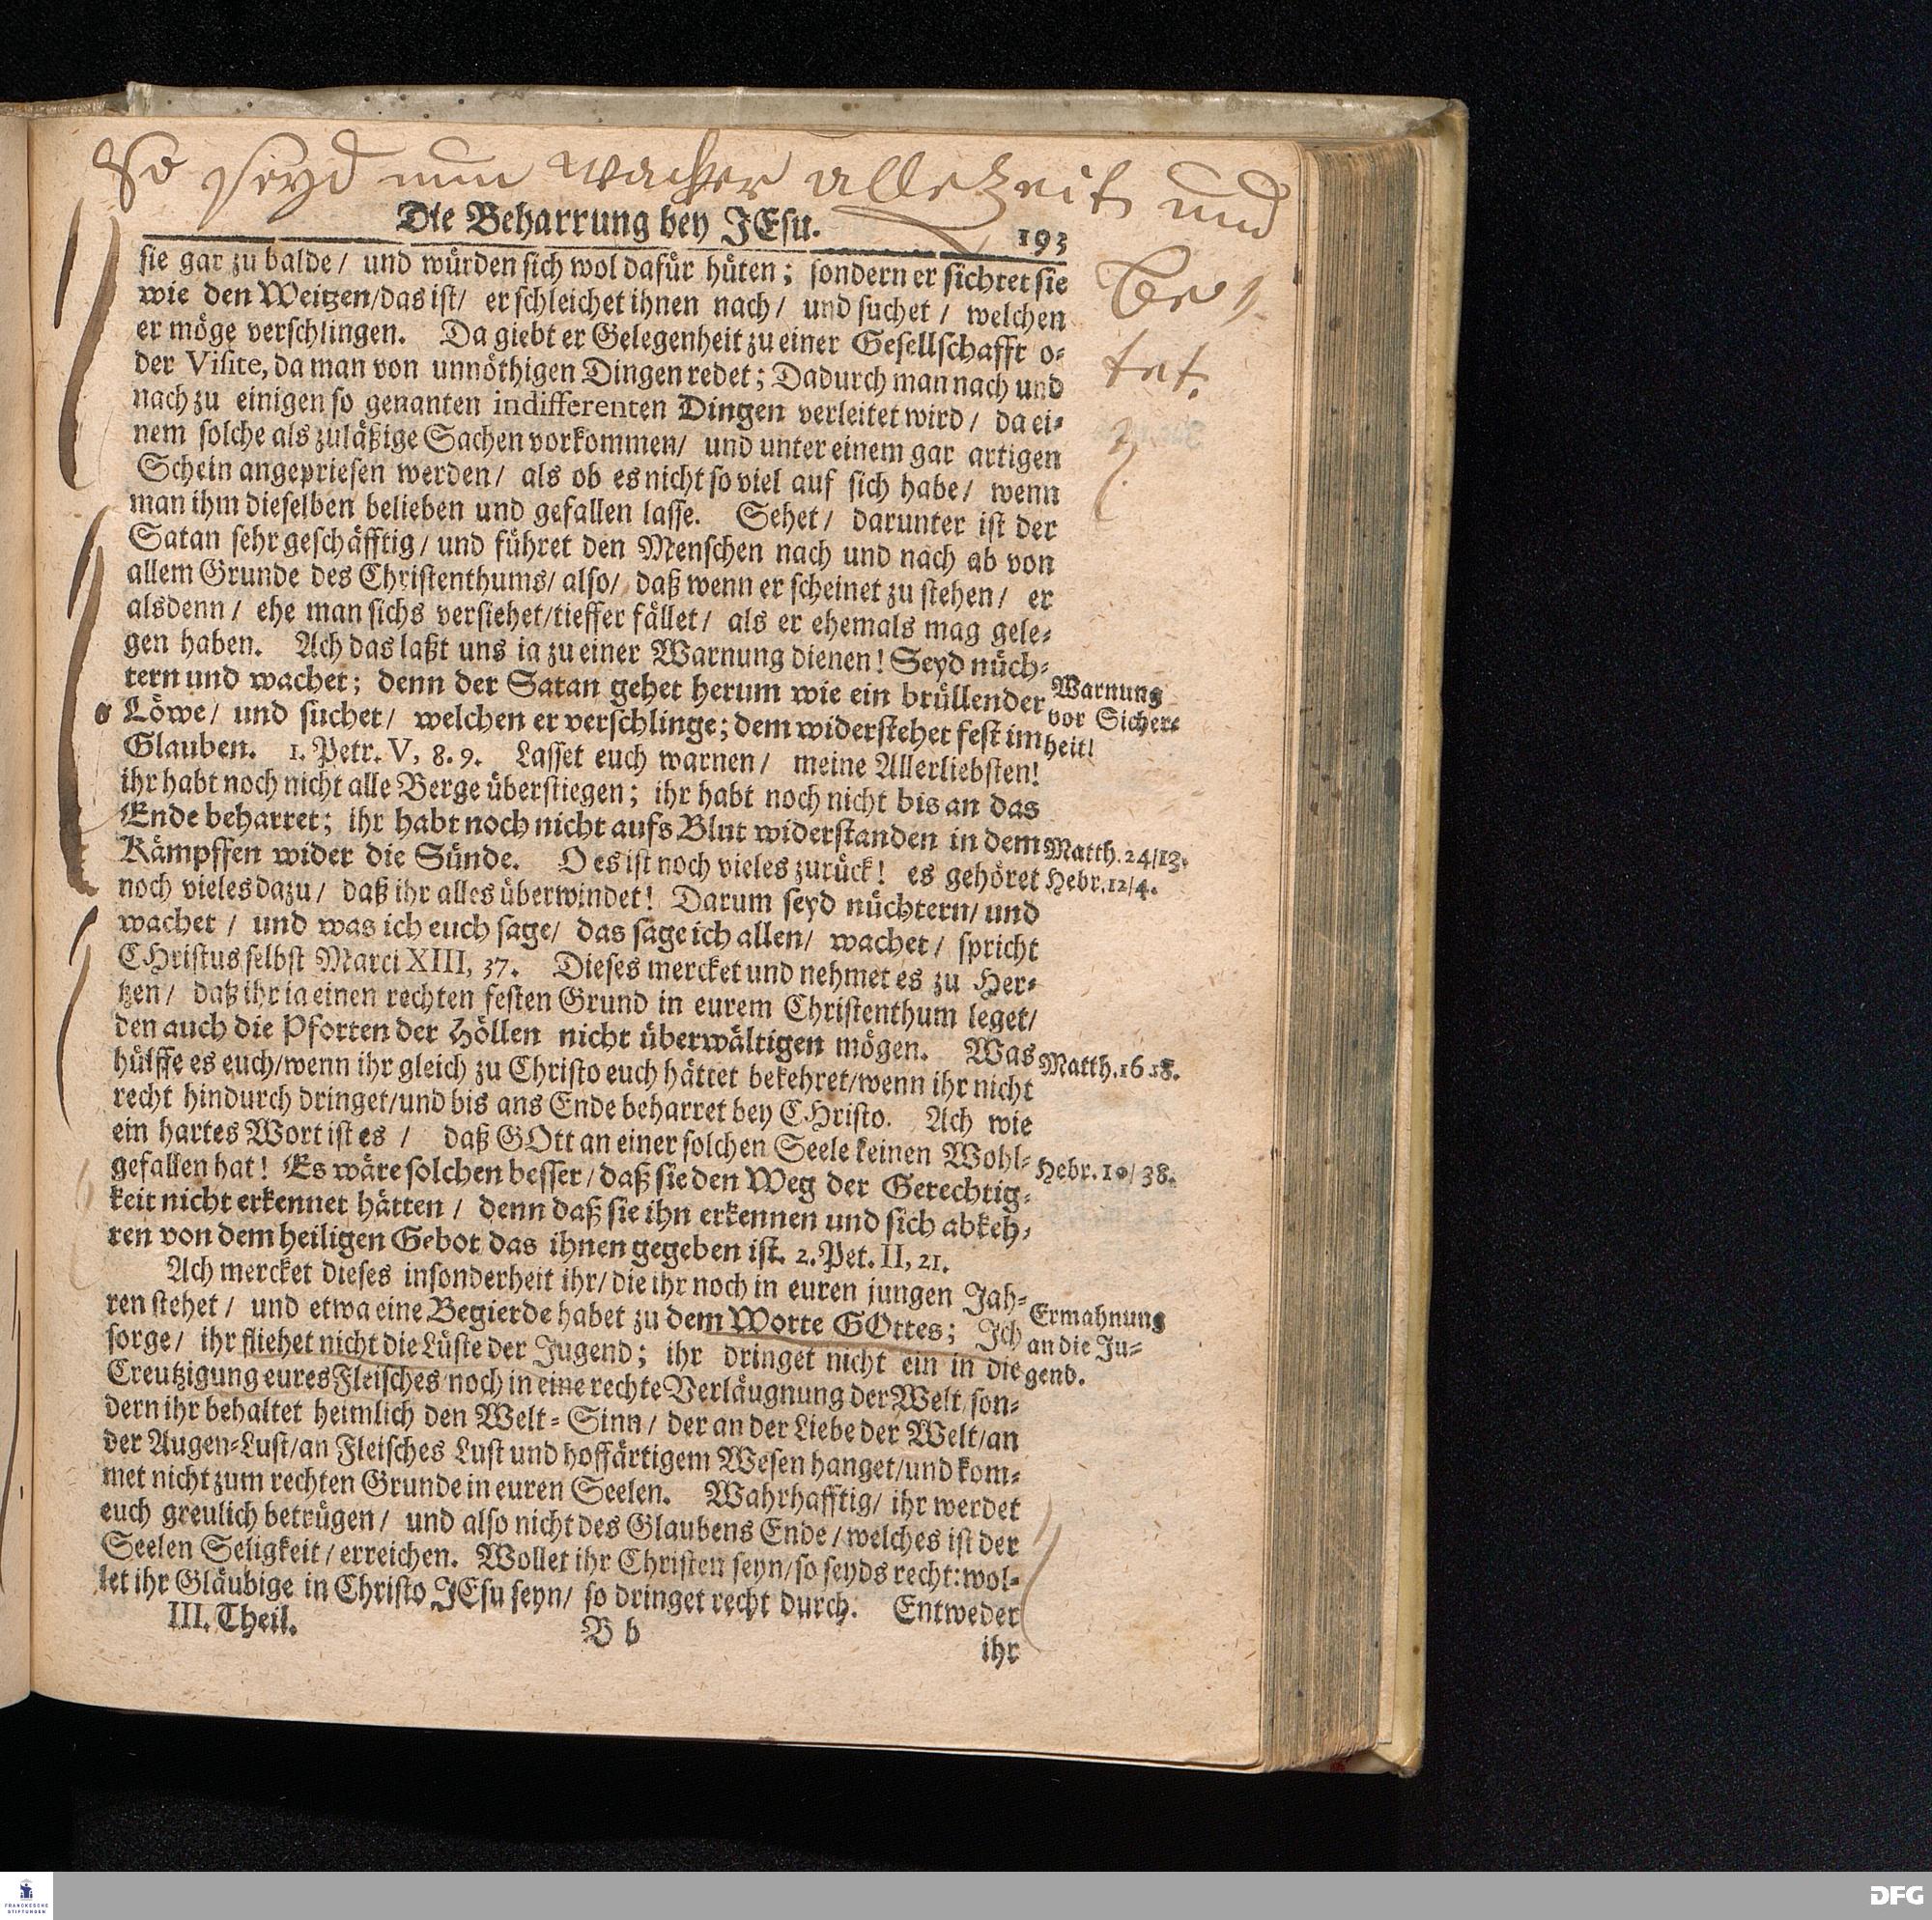 So seyd nun wacker allezeit und
bey
tet.
Die Beharrung bey JEsu. 193
sie gar zu balde/ und würden sich wol dafür hüten; sondern er sichtet sie
wie den Weitzen/das ist/ er schleichet ihnen nach/ und suchet/ welchen
er möge verschlingen. Da giebt er Gelegenheit zu einer Gesellschafft o-
der Visite, da man von unnöthigen Dingen redet; Dadurch man nach und
nach zu einigen so genanten indifferenten Dingen verleitet wird/ da ei-
nem solche als zuläßige Sachen vorkommen/ und unter einem gar artigen
Schein angepriesen werden/ als ob es nicht so viel auf sich habe/ wenn
man ihm dieselben belieben und gefallen lasse. Sehet/ darunter ist der
Satan sehr geschäfftig/ und führet den Menschen nach und nach ab von
allem Grunde des Christenthums/ also/ daß wenn er scheinet zu stehen/ er
alsdenn/ ehe man sichs versiehet/tieffer fället/ als er ehemals mag gele-
gen haben. Ach das laßt uns ia zu einer Warnung dienen! Seyd nüch-
tern und wachet; denn der Satan gehet herum wie ein brüllender
Löwe/ und suchet/ welchen er verschlinge; dem widerstehet fest im
Glauben. 1. Petr. V, 8. 9. Lasset euch warnen/ meine Allerliebsten!
Warnung
vor Sicher-
heit!
ihr habt noch nicht alle Berge überstiegen; ihr habt noch nicht bis an das
Ende beharret; ihr habt noch nicht aufs Blut widerstanden in dem
Kämpffen wider die Sünde. O es ist noch vieles zurück! es gehöret
Matth. 24/13.
Hebr. 12/4.
noch vieles dazu/ daß ihr alles überwindet! Darum seyd nüchtern/ und
wachet/ und was ich euch sage/ das sage ich allen/ wachet/ spricht
CHristus selbst Marci XIII, 37. Dieses mercket und nehmet es zu Her-
tzen/ daß ihr ia einen rechten festen Grund in eurem Christenthum leget/
den auch die Pforten der Höllen nicht überwältigen mögen. Was
Matth. 16.18.
hülffe es euch/wenn ihr gleich zu Christo euch hättet bekehret/wenn ihr nicht
recht hindurch dringet/und bis ans Ende beharret bey CHristo. Ach wie
ein hartes Wort ist es/ daß GOtt an einer solchen Seele keinen Wohl-
gefallen hat! Es wäre solchen besser/ daß sie den Weg der Gerechtig-
Hebr. 10/38.
keit nicht erkennet hätten/ denn daß sie ihn erkennen und sich abkeh-
ren von dem heiligen Gebot das ihnen gegeben ist. 2. Pet. II, 21.
Ach mercket dieses insonderheit ihr/ die ihr noch in euren jungen Jah-
ren stehet/ und etwa eine Begierde habet zu dem Worte GOttes; Ich
sorge/ ihr fliehet nicht die Lüste der Jugend; ihr dringet nicht ein in die
Ermahnung
an die Ju-
gend.
Creutzigung eures Fleisches noch in eine rechte Verläugnung der Welt, son-
dern ihr behaltet heimlich den Welt-Sinn/ der an der Liebe der Welt/an
der Augen-Lust/an Fleisches Lust und hoffärtigem Wesen hanget/und kom-
met nicht zum rechten Grunde in euren Seelen. Wahrhafftig/ ihr werdet
euch greulich betrügen/ und also nicht des Glaubens Ende/welches ist der
Seelen Seligkeit/erreichen. Wollet ihr Christen seyn/so seyds recht: wol-
let ihr Gläubige in Christo JEsu seyn/ so dringet recht durch. Entweder
III. Theil. B b
ihr
FRANCKESCHE
STIFTUNGEN
DFG